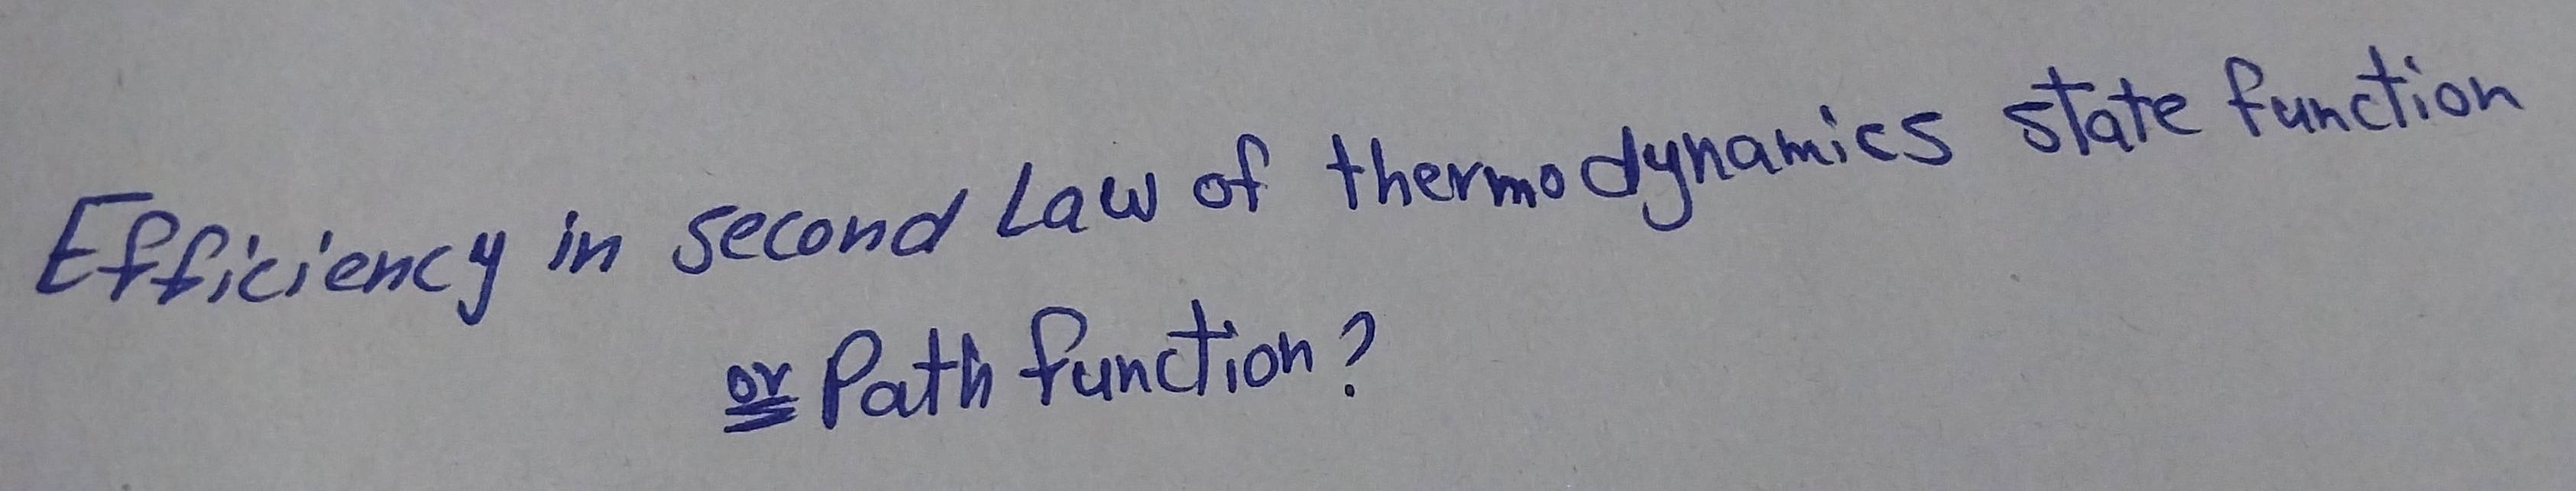 Efficiency in second Law of thermodynamics state function
or Path function?